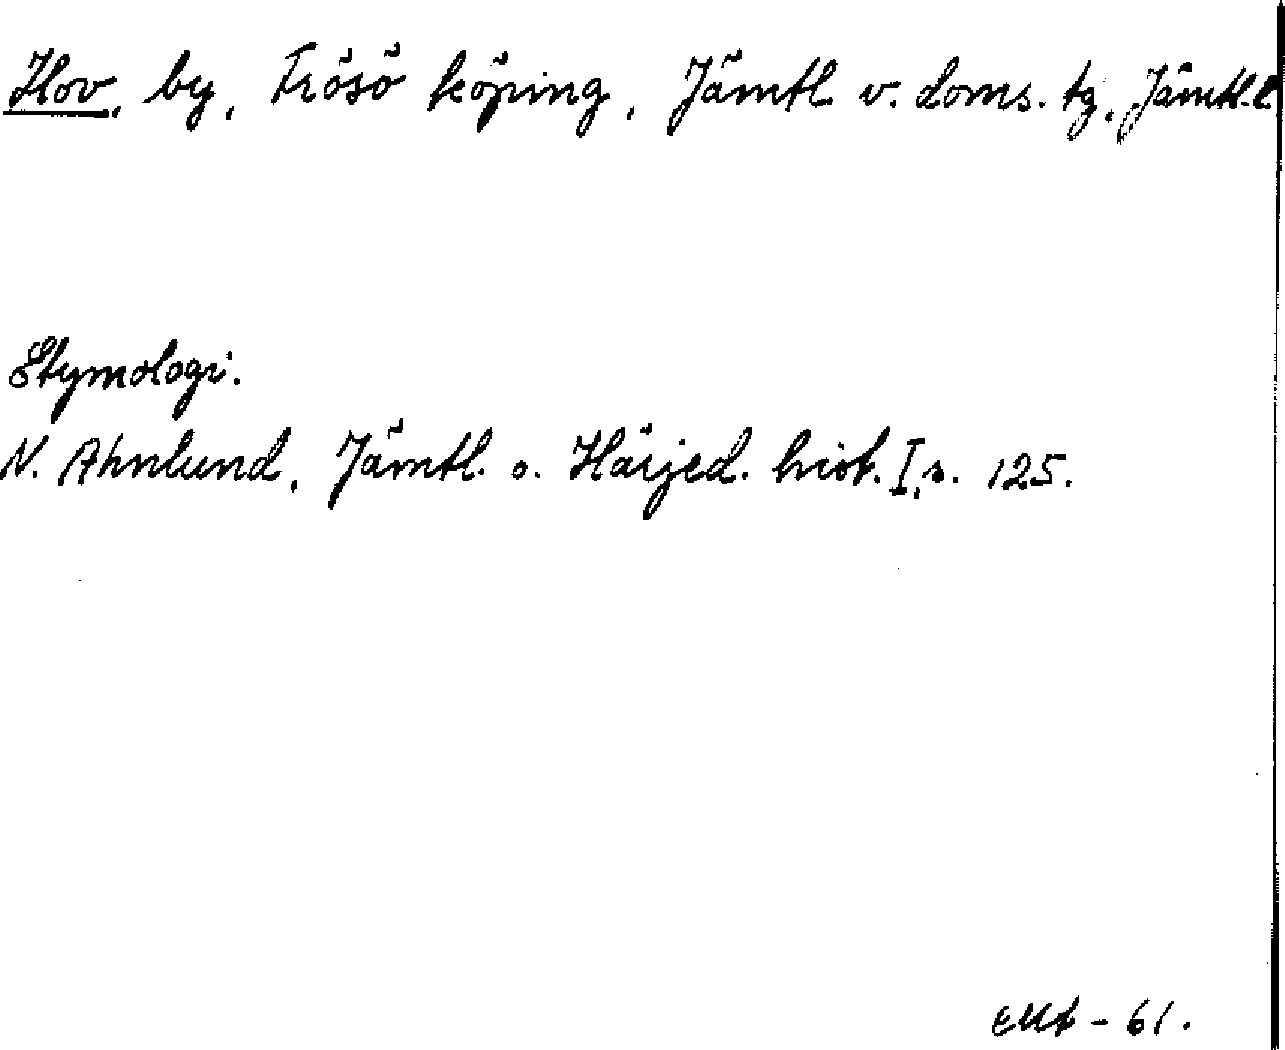 Hov, by, Frösö köping, Jämtl. v. doms. tg, Jämtl. l.
Etymologi.
N. Ahnlund, Jämtl. o. Härjed. hist. I, s. 125.
- 61.